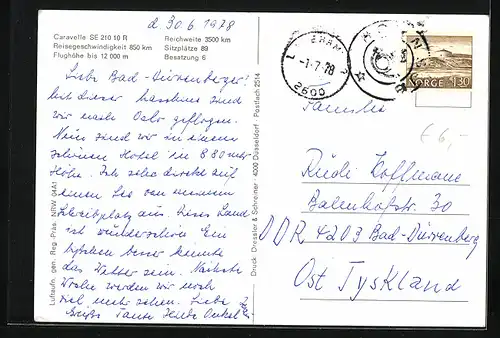 d 30.6.1978
Caravelle SE 210 10 R Reichweite 3500 km
Reisegeschwindigkeit 850 km Sitzplätze 89
Flughöhe bis 12 000 m Besatzung 6
Liebe Bad-Dürrenberger!
Mit dieser Maschine sind
wir nach Oslo geflogen.
Nun sind wir in einem
schönen Hotel in 880 mtr
Höhe. Ich sehe direkt auf
einen See von meinem
Schreibplatz aus. Dieses Land
ist wunderschön. Ein
bißchen besser könnte
das Wetter sein. Nächste
Woche werden wir noch
viel mehr sehen. Liebe
Grüße Tante Onkel
Luftaufn. gen. Reg.-Präs. NRW 04A1
Druck: Dressler & Schreiner · 4000 Düsseldorf · Postfach 2514
-1.-7.78
2600
NORGE 1.30
Familie
€ 6,-
Rudi Koffmane
Bahnhofstr. 30
DDR 4203 Bad-Dürrenberg
Ost Tyskland